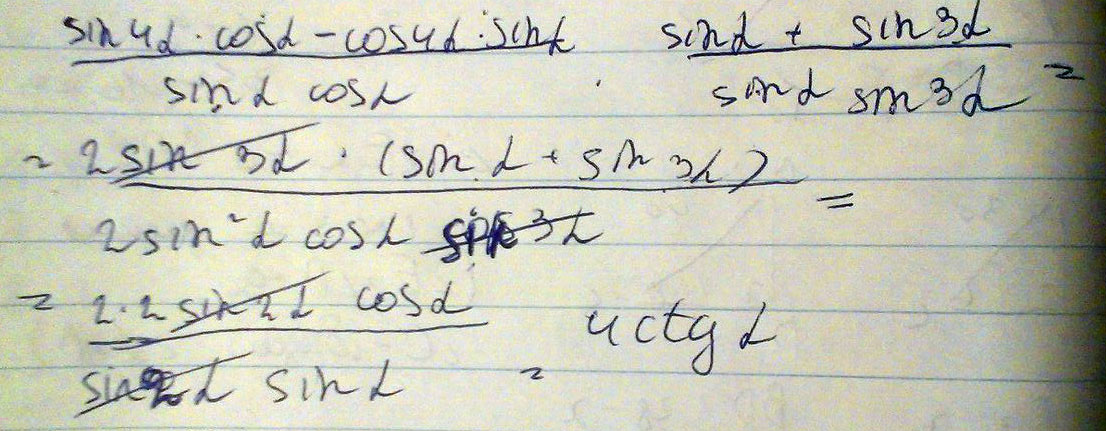 sin4α · cosα - cos4α · sinα   sinα + sin3α
sinα cosα · sinα sin3α =
= 2 sin 3α · (sin α + sin 3α) =
2 sin²α cosα sin 3α
= 2·2 sin 2α cosα
sin2α sinα = 4ctgα